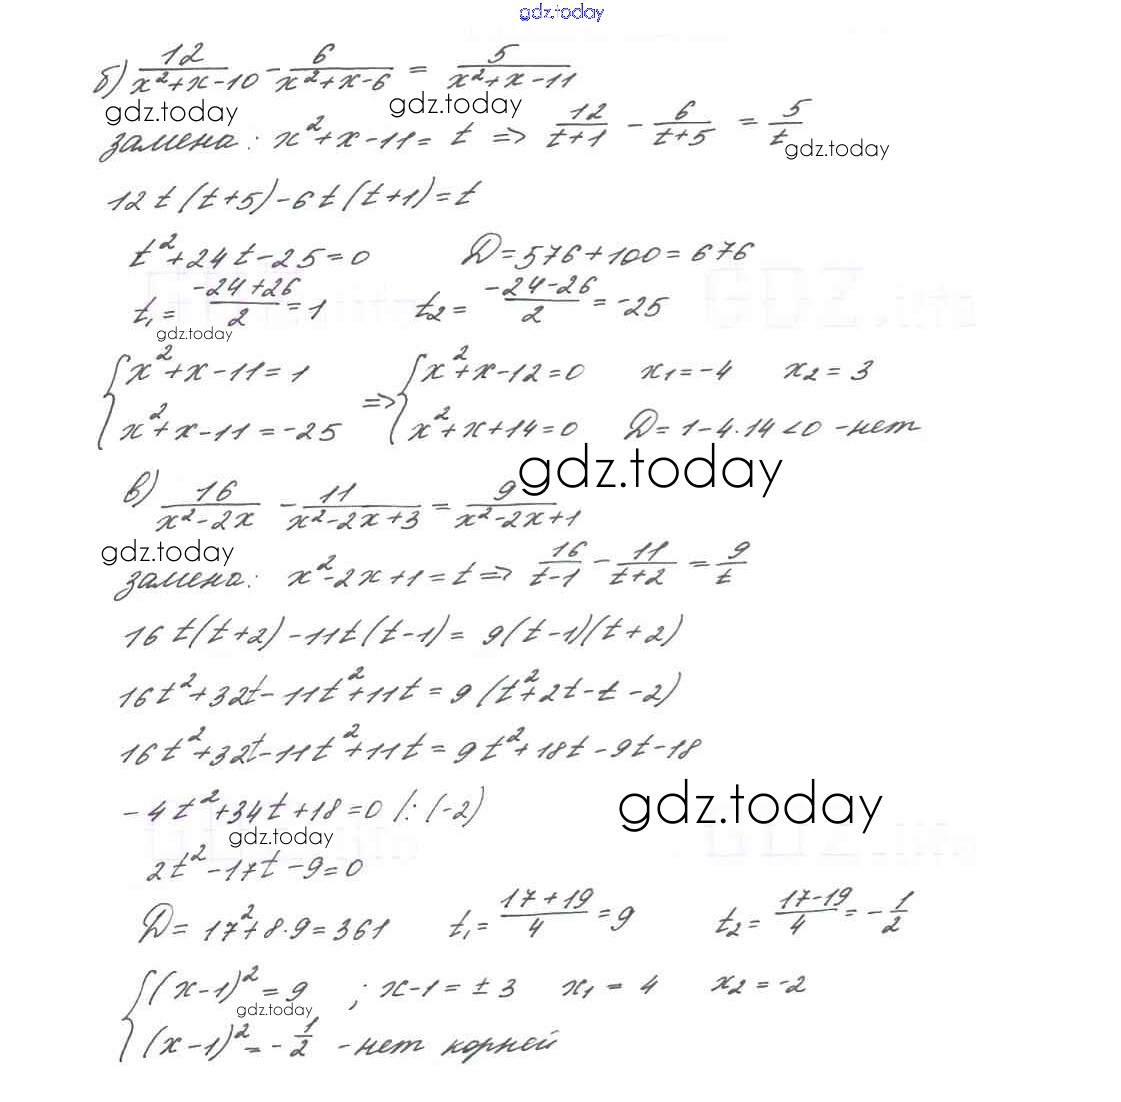 gdz.today
б) 12/(x²+x-10) - 6/(x²+x-6) = 5/(x²+x-11)
gdz.today gdz.today
замена: x²+x-11 = t => 12/(t+1) - 6/(t+5) = 5/t
gdz.today
12t(t+5)-6t(t+1)=t
t²+24t-25=0 D=576+100=676
t₁= (-24+26)/2 =1 t₂= (-24-26)/2 = -25
gdz.today
{x²+x-11=1 => {x²+x-12=0 x₁=-4 x₂=3
{x²+x-11=-25 {x²+x+14=0 D=1-4·14<0 -нет
gdz.today
в) 16/(x²-2x) - 11/(x²-2x+3) = 9/(x²-2x+1)
gdz.today
замена: x²-2x+1=t => 16/(t-1) - 11/(t+2) = 9/t
16t(t+2)-11t(t-1)= 9(t-1)(t+2)
16t²+32t-11t²+11t=9(t²+2t-t-2)
16t²+32t-11t²+11t=9t²+18t-9t-18
gdz.today
-4t²+34t+18=0 /:(-2)
gdz.today
2t²-17t-9=0
D=17²+8·9=361 t₁= (17+19)/4 =9 t₂= (17-19)/4 = -1/2
{(x-1)²=9 ; x-1=±3 x₁=4 x₂=-2
gdz.today
{(x-1)²=-1/2 -нет корней